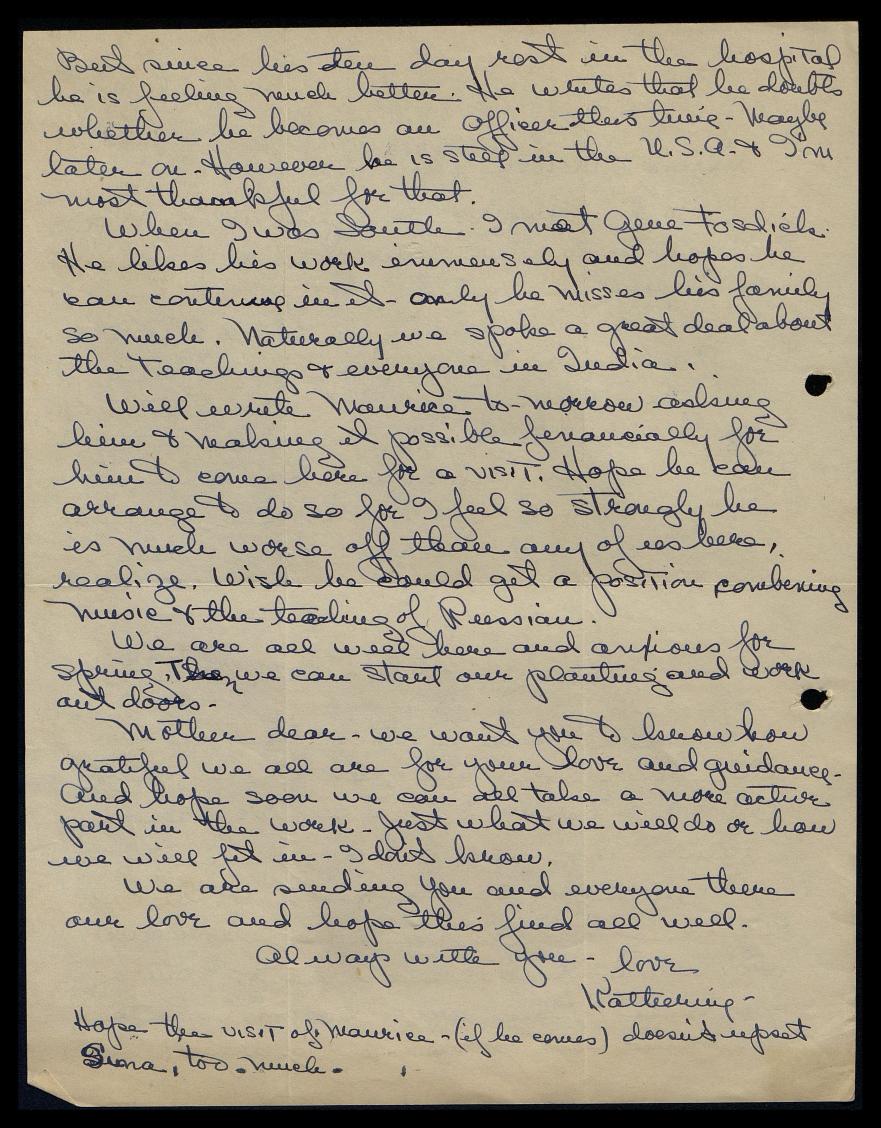 But since his ten day rest in the hospital
he is feeling much better. He writes that he doubts
whether he becomes an officer this time - Maybe
later on. However he is still in the U.S.A. & I'm
most thankful for that.
When I was South. I met Gene Fosdick.
He likes his work immensely and hopes he
can continue in it - only he misses his family
so much. Naturally we spoke a great deal about
the Teachings & everyone in India.
Will write Maurice to-morrow asking
him & making it possible financially for
him to come here for a visit. Hope he can
arrange to do so for I feel so strongly he
is much worse off than any of us here,
realize. Wish he could get a position combining
music & the teaching of Russian.
We are all well here and anxious for
spring. Then we can start our planting and work
out doors -
Mother dear - we want you to know how
grateful we all are for your love and guidance -
And hope soon we can all take a more active
part in the work - Just what we will do or how
we will fit in - I don't know.
We are sending you and everyone there
our love and hope this find all well.
Always with you - love
Katherine -
Hope the visit of Maurice - (if he comes) doesn't upset
Sina, too - much.